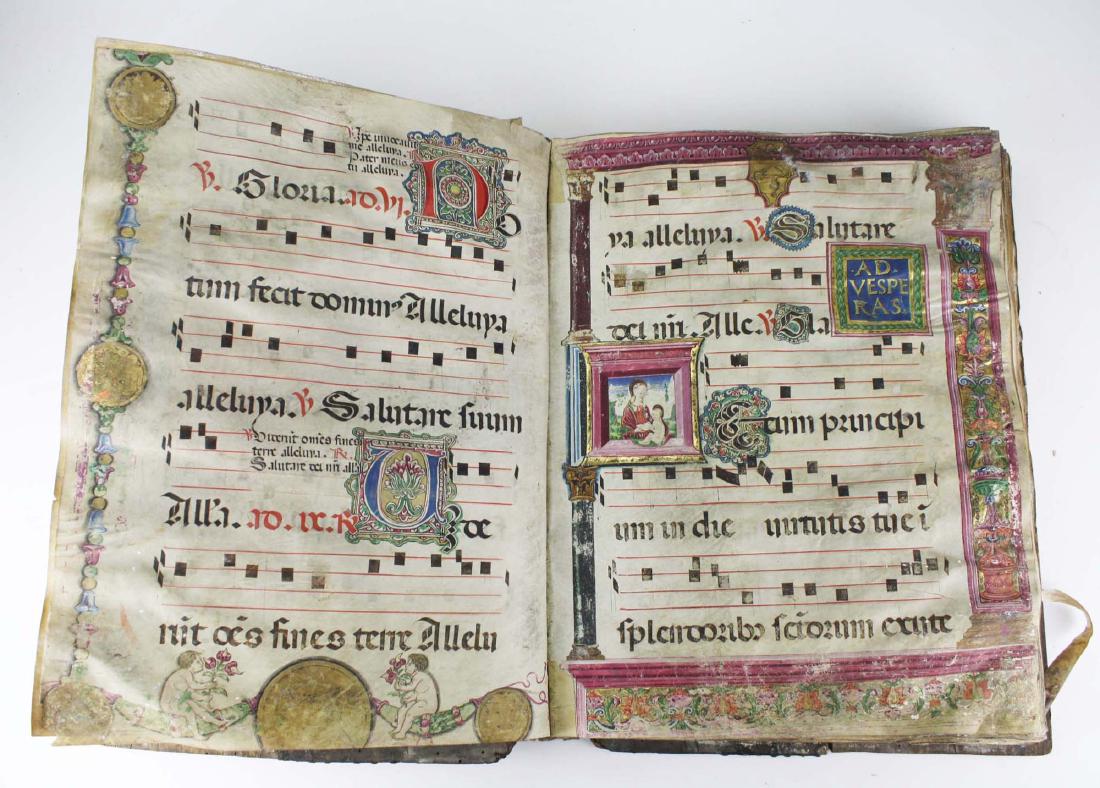 ipse invocavit
me alleluya.
Pater meus
tu alleluya.
℣. Gloria. ad. vi. N O
tum fecit dominꝰ Alleluya
alleluya. ℣ Salutare suum
Viderūt omēs fines
terre alleluya. ℟.
Salutare dei nr̄i all̄a
All̄a. ad. ix. ℟ V I de
rūt oēs fines terre Allelu
ya alleluya. ℣. Salutare
AD.
VESPE
RAS.
dei nr̄i. Alle. ℣ Gla
Ecum principi
um in die virtutis tue ī
splendoribꝰ sc̄torum ex ute